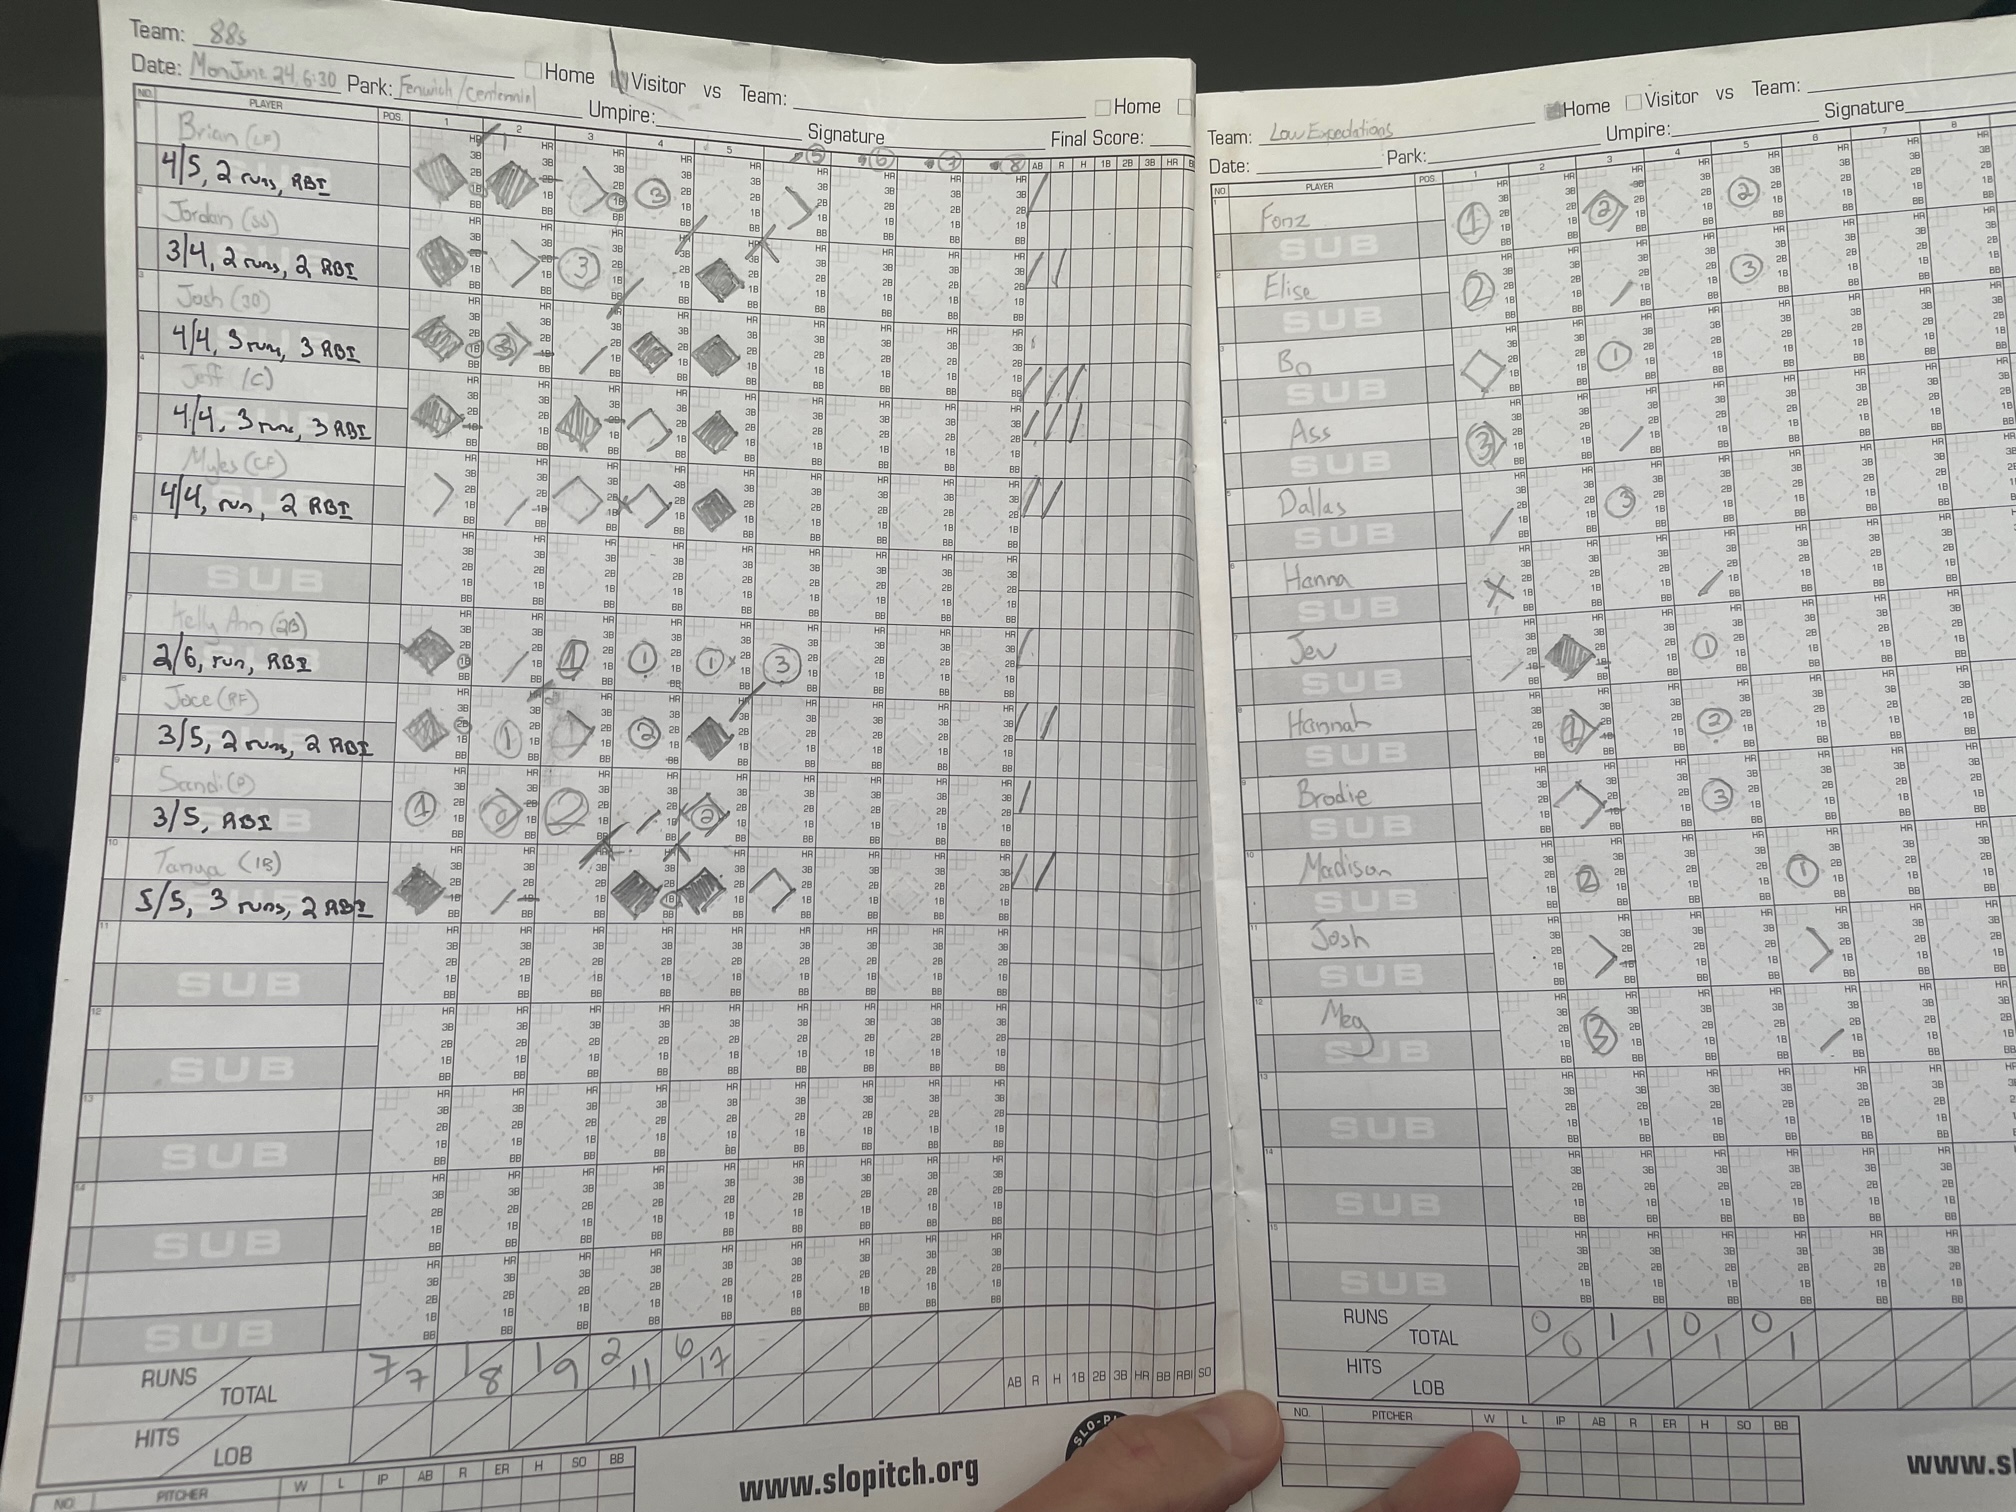 Team: 88s
Home Visitor vs Team:
Date: Mon June 24, 6:30 Park: Fenwick/Centennial Umpire: Signature
Home
Final Score:
NO. PLAYER POS. 1 2 3 4 5 5 6 7 8 AB R H 1B 2B 3B HR B
1 Brian (LF)
4/5, 2 runs, RBI
2 Jordan (SS)
3/4, 2 runs, 2 RBI
3 Josh (3B)
4/4, 3 runs, 3 RBI
4 Jeff (C)
4/4, 3 runs, 3 RBI
5 Myles (CF)
4/4, run, 2 RBI
6
SUB
7 Kelly Ann (2B)
2/6, run, RBI
8 Joce (RF)
3/5, 2 runs, 2 RBI
9 Sandi (P)
3/5, RBI
10 Tanya (1B)
5/5, 3 runs, 2 RBI
11
SUB
12
SUB
13
SUB
14
SUB
15
SUB
RUNS TOTAL 7 7 1 8 1 9 2 11 6 17
AB R H 1B 2B 3B HR BB RBI SO
HITS LOB
NO. PITCHER W L IP AB R ER H SO BB
SLO-PI
www.slopitch.org
Team: Low Expectations
Home Visitor vs Team:
Date: Park: Umpire: Signature
NO. PLAYER POS. 1 2 3 4 5 6 7 8
1 Fonz
SUB
2 Elise
SUB
3 Bo
SUB
4 Ass
SUB
5 Dallas
SUB
6 Hanna
SUB
7 Jev
SUB
8 Hannah
SUB
9 Brodie
SUB
10 Madison
SUB
11 Josh
SUB
12 Meg
SUB
13
SUB
14
SUB
15
SUB
RUNS TOTAL 0 0 1 1 0 1 0 1
HITS LOB
NO. PITCHER W L IP AB R ER H SO BB
www.sl